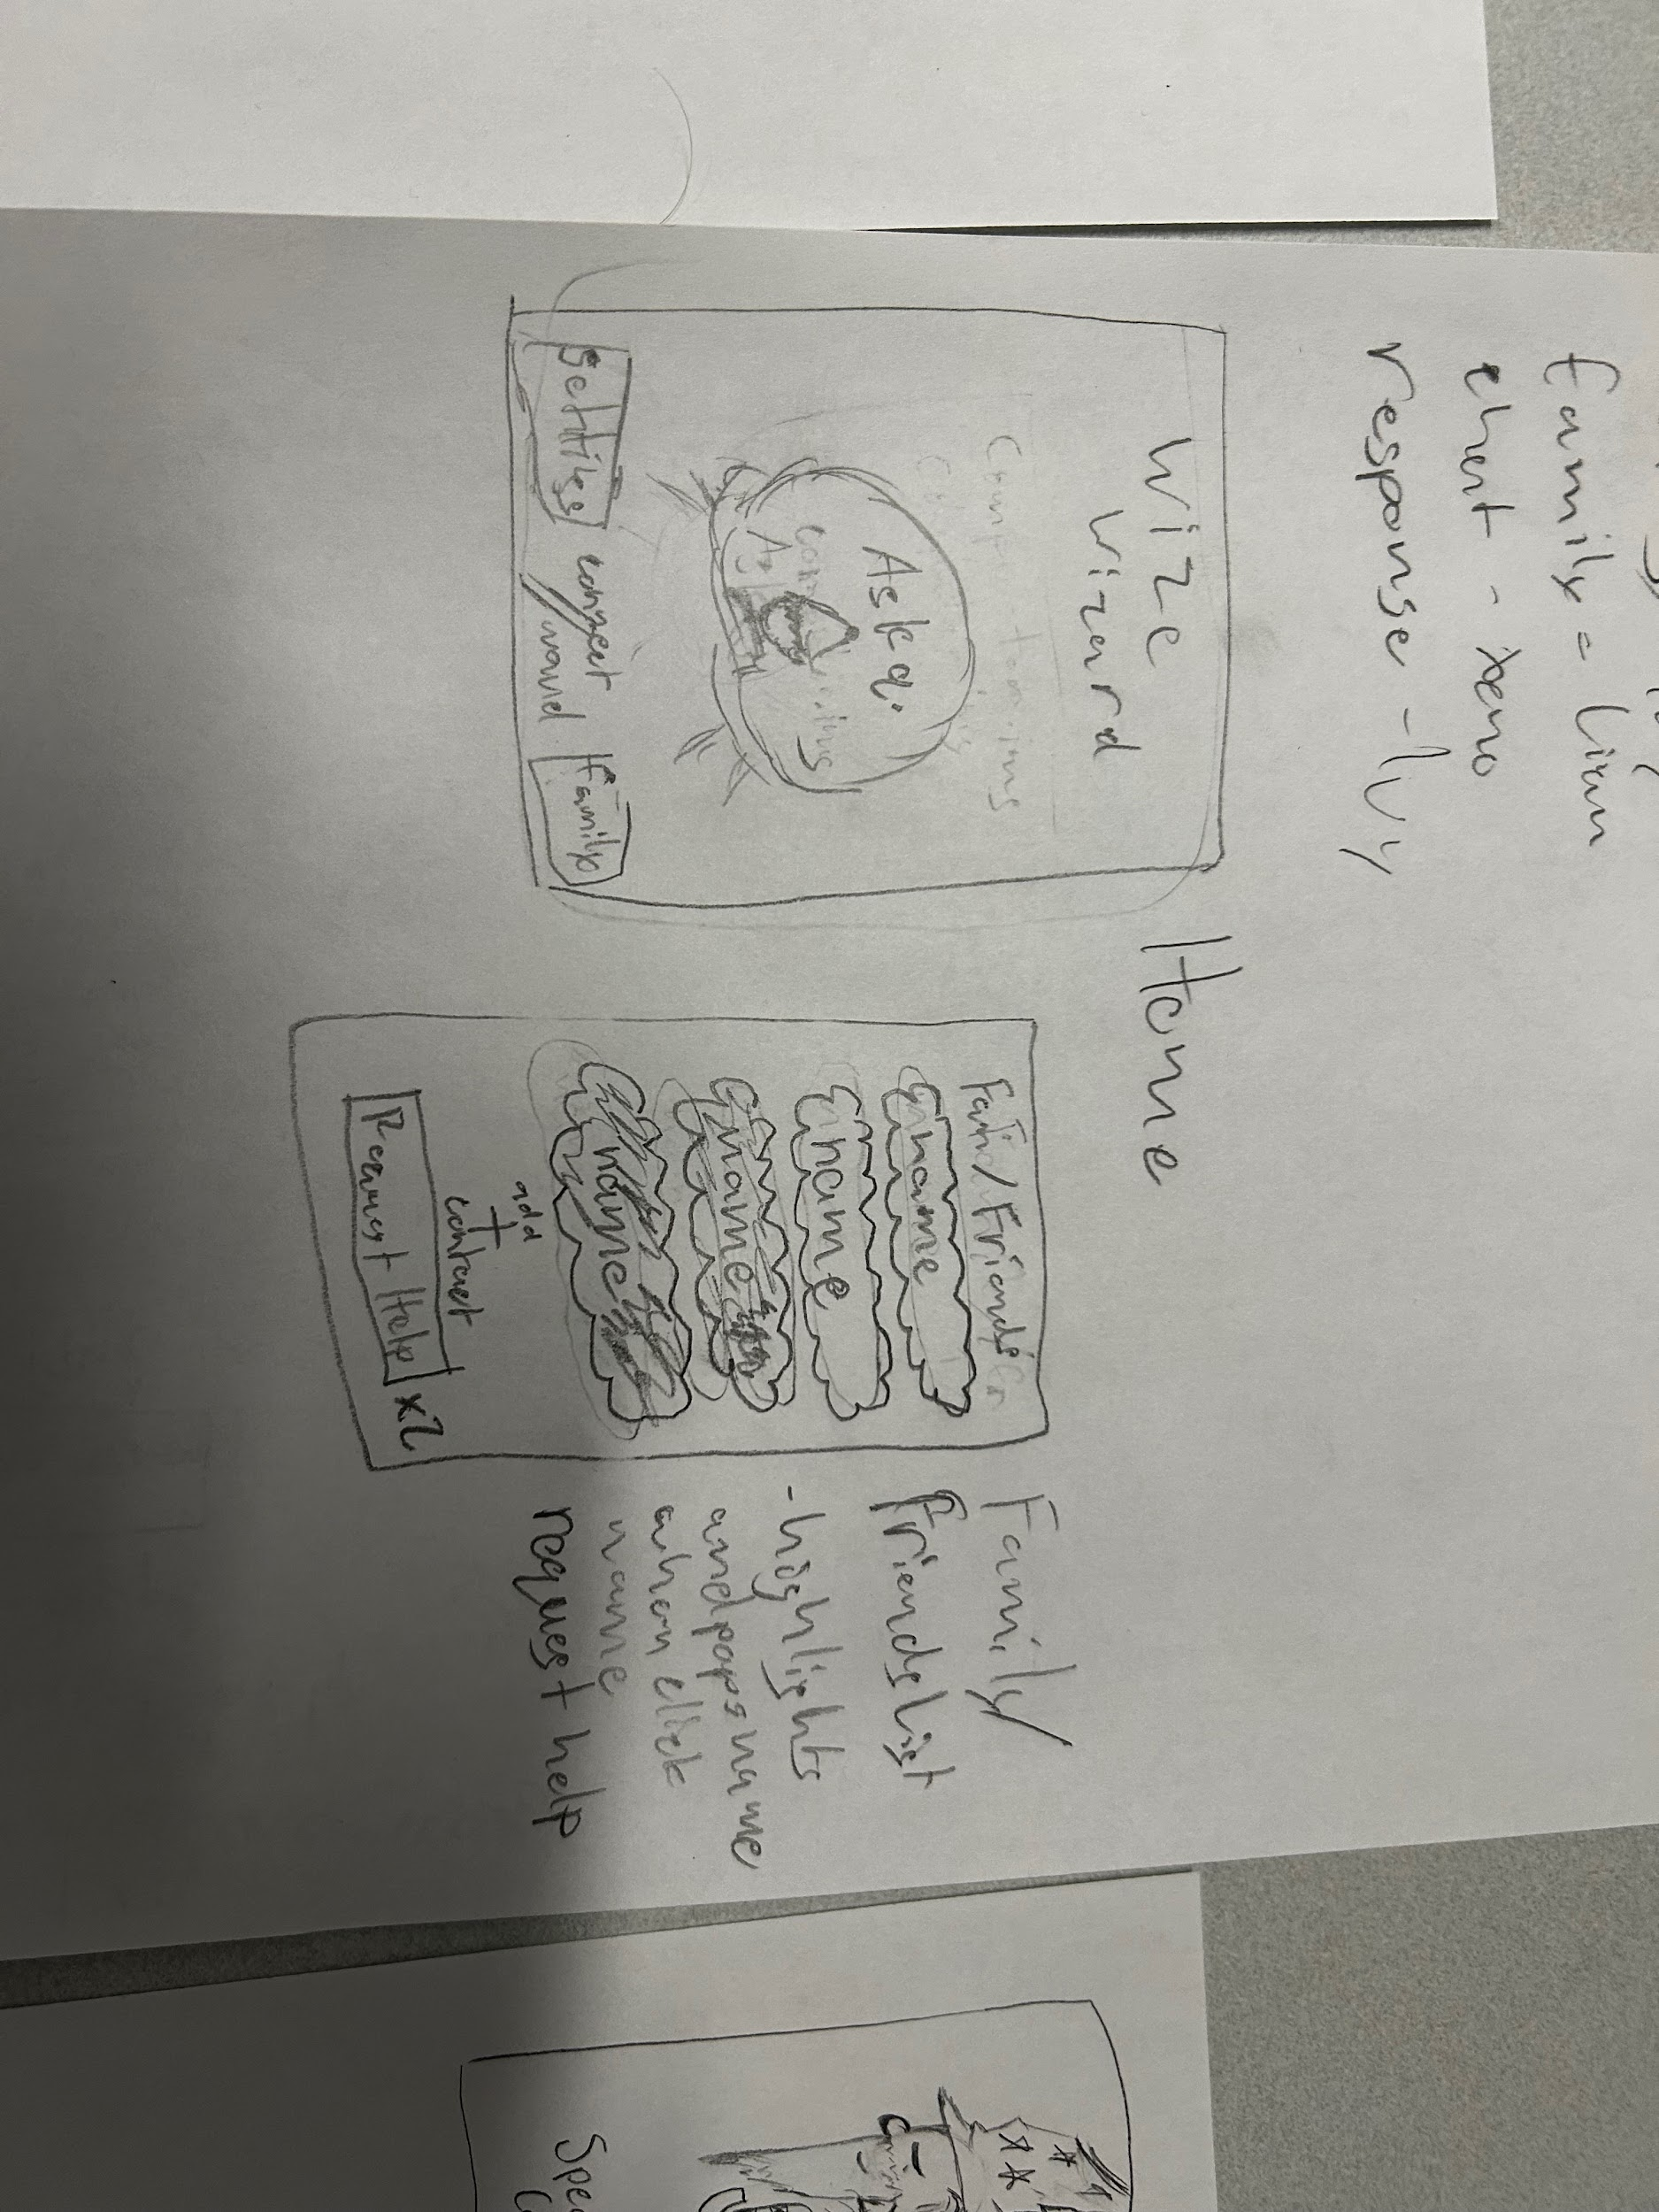 family = liam
chat - xeno
response - Ivy
Wize
Wizard
Ask q.
Settings
connect
Family
Home
Fam/Friends
name
name
name
name
add
+
contact
Request Help x2
Family/
Friends list
- highlights
and pops name
when click
name
request help
Spe